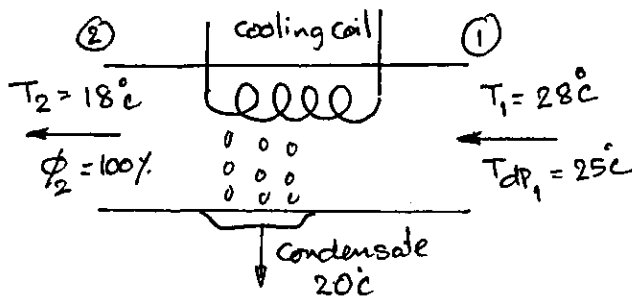 ② cooling coil ①
T₂ = 18°c T₁ = 28°c
ϕ₂ = 100% T_dp₁ = 25°c
Condensate
20°c